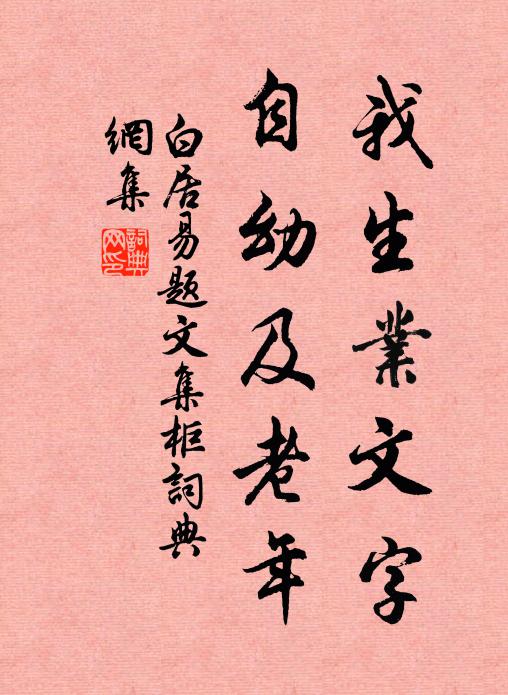 我生業文字
自幼及老年
白居易題文集柜詞典
網集
詞典網印